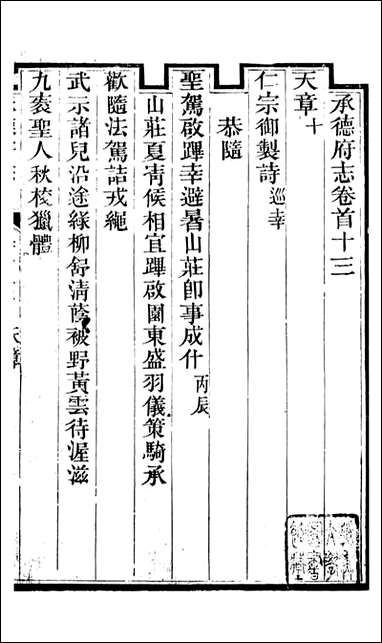 承德府志卷首十三
天章十
仁宗御製詩巡幸
恭隨
聖駕啟蹕幸避暑山莊卽事成什丙辰
山莊夏淸候相宜蹕啟園東盛羽儀策騎承
歡隨法駕詰戎繩
武示諸兒沿途綠柳舒清蔭被野黃雲待渥滋
九袠聖人秋校獵體